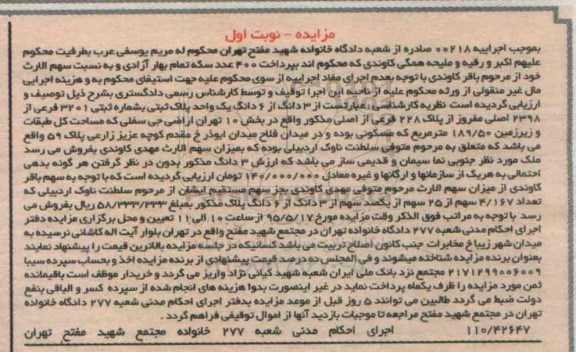 مزایده - نوبت اول
بموجب اجراییه ۰۰۲۱۸ صادره از شعبه دادگاه خانواده شهید مفتح تهران محکوم له مریم یوسفی عرب بطرفیت محکوم
علیهم اکبر و رقیه و ملیحه همگی کاوندی که محکوم اند بپرداخت ۴۰۰ عدد سکه تمام بهار آزادی و به نسبت سهم الارث
خود از مرحوم باقر کاوندی با توجه بعدم اجرای مفاد اجراییه از سوی محکوم علیه جهت استیفای محکوم به و هزینه اجرایی
مال غیر منقولی از ورثه محکوم علیه از ناحیه این اجرا توقیف و توسط کارشناس رسمی دادگستری بشرح ذیل توصیف و
ارزیابی گردیده است نظریه کارشناسی: عبارتست از ۳ دانگ از ۶ دانگ یک واحد پلاک ثبتی بشماره ثبتی ۳۲۰۱ فرعی از
۲۳۹۸ اصلی مفروز از پلاک ۲۲۸ فرعی از اصلی مذکور واقع در بخش ۱۰ تهران اراضی جی سفلی که مساحت کل طبقات
و زیرزمین ۱۸۹/۵۰ مترمربع که مسکونی بوده و در میدان فلاح میدان ابوذر خ مقدم کوچه عزیز زارعی پلاک ۵۹ واقع
می باشد که متعلق به مرحوم متوفی سلطنت ناوک اردبیلی بوده که بمیزان سهم الارث مهدی کاوندی بفروش می رسد
ملک مورد نظر جنوبی نما سیمان و قدیمی ساز می باشد که ارزش ۳ دانگ مذکور بدون در نظر گرفتن هر گونه بدهی
احتمالی به هریک از سازمانها و ارگانها و غیره معادل ۱۴۰/۰۰۰/۰۰۰ تومان ارزیابی گردیده است که با توجه به سهم باقر
کاوندی از میزان سهم الارث مرحوم متوفی مهدی کاوندی بجز سهم مستقیم ایشان از مرحوم سلطنت ناوک اردبیلی که
تعداد ۴/۱۶۷ سهم از ۲۵ سهم از یکصد سهم از ۳ دانگ از ۶ دانگ پلاک مذکور بمبلغ ۵۸/۲۳۳/۲۳۳ ریال بفروش می
رسد با توجه به مراتب فوق الذکر وقت مزایده مورخ ۹۵/۵/۱۷ از ساعت ۱۰ الی ۱۱ تعیین و محل برگزاری مزایده دفتر
اجرای احکام مدنی شعبه ۲۷۷ دادگاه خانواده تهران در مجتمع شهید مفتح واقع در تهران بلوار آیت اله کاشانی نرسیده به
میدان شهر زیبا خ مخابرات جنب کانون اصلاح تربیت می باشد کسانیکه در جلسه مزایده بالاترین قیمت را پیشنهاد نمایند
بعنوان برنده مزایده شناخته میشوند و فی المجلس ده درصد قیمت پیشنهادی از برنده مزایده اخذ و بحساب سپرده سیبا
۲۱۷۱۲۹۹۰۰۶۰۰۹ مجتمع نزد بانک ملی ایران شعبه شهید کیانی نژاد واریز می گردد و خریدار موظف است باقیمانده
ثمن مورد مزایده را ظرف یکماه پرداخت نماید در غیر اینصورت بدوا هزینه های انجام شده از سپرده کسر و الباقی بنفع
دولت ضبط می گردد طالبین می توانند ۵ روز قبل از موعد مزایده بدفتر اجرای احکام مدنی شعبه ۲۷۷ دادگاه خانواده
تهران در مجتمع شهید مفتح مراجعه تا موجبات بازدید آنها از اموال توقیفی فراهم گردد.
۱۱۰/۴۲۶۴۷ اجرای احکام مدنی شعبه ۲۷۷ خانواده مجتمع شهید مفتح تهران